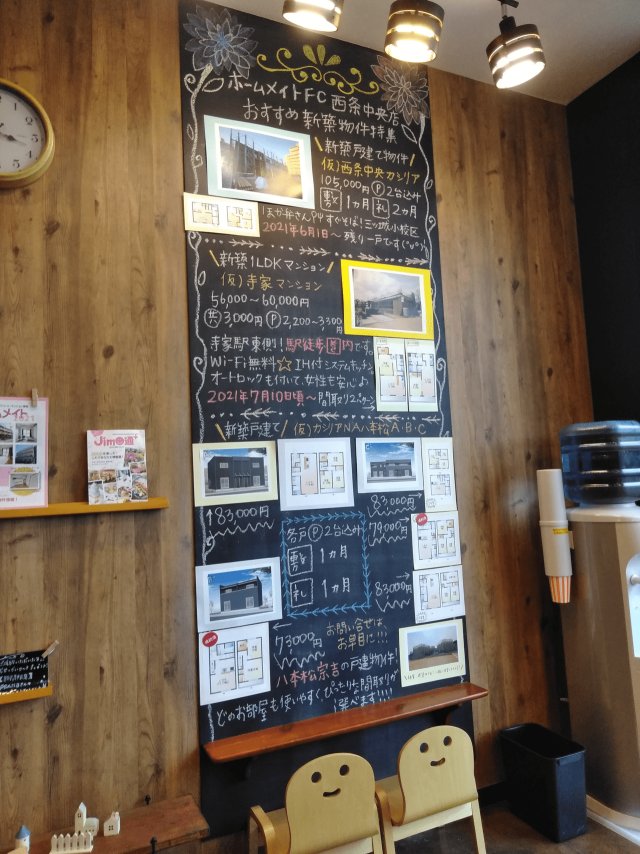 ホームメイトFC西条中央店
おすすめ新築物件特集
新築戸建て物件
仮)西条中央カシリア
105,000円 P 2台込み
敷 1ヵ月 礼 2ヵ月
すぐそば!三ツ城小校区
2021年6月1日〜 残り一戸です(^o^)
新築1LDKマンション
仮)寺家マンション
56,000〜60,000円
共 3,000円 P 2,200〜3,300円
寺家駅東側!駅徒歩 圏 内です。
Wi-Fi無料☆IH付システムキッチン
オートロックも付いて、女性も安心♪
2021年7月10日頃〜間取り2パターン
新築戸建て 仮)カシリアNA八本松A・B・C
83,000円
183,000円
79,000円
各戸 P 2台込み
敷 1ヵ月
礼 1ヵ月
83,000円
73000円
お問い合せは
お早目に!!!
八本松宗吉の戸建物件!
どのお部屋も使いやすくぴったりな間取りが
選べます!!!!
Jimo通
メイト